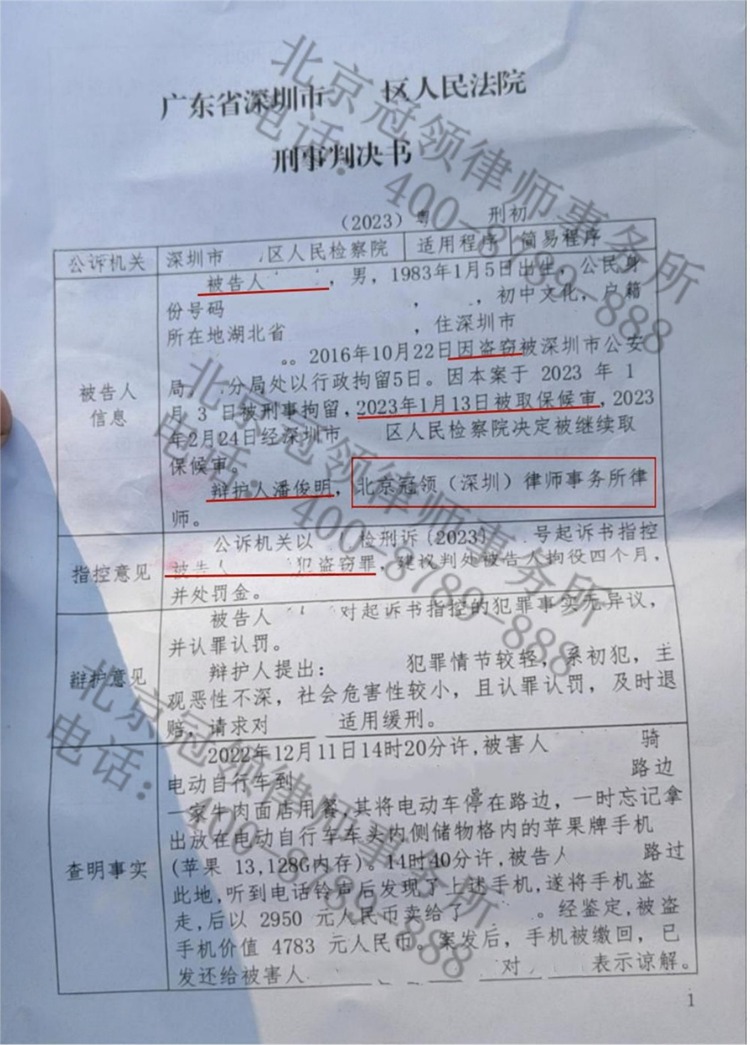 广东省深圳市 区人民法院
刑事判决书
（2023）粤 刑初
公诉机关 深圳市 区人民检察院 适用程序 简易程序
被告人 ，男，1983年1月5日出生，公民身
份号码 ，初中文化，户籍
所在地湖北省 ，住深圳市
。。2016年10月22日因盗窃被深圳市公安
局 分局处以行政拘留5日。因本案于 2023 年 1
月 3 日被刑事拘留，2023年1月13日被取保候审，2023
年2月24日经深圳市 区人民检察院决定被继续取
保候审。
辩护人潘俊明，北京冠领（深圳）律师事务所律
师。
被告人
信息
公诉机关以 检刑诉（2023） 号起诉书指控
被告人 犯盗窃罪，建议判处被告人拘役四个月，
并处罚金。
指控意见
被告人 对起诉书指控的犯罪事实无异议，
并认罪认罚。
辩护人提出： 犯罪情节较轻，系初犯，主
观恶性不深，社会危害性较小，且认罪认罚，及时退
赔，请求对 适用缓刑。
辩护意见
2022年12月11日14时20分许，被害人 骑
电动自行车到 路边
一家牛肉面店用餐，其将电动车停在路边，一时忘记拿
出放在电动自行车车头内侧储物格内的苹果牌手机
(苹果 13，128G内存)。14时40分许，被告人 路过
此地，听到电话铃声后发现了上述手机，遂将手机盗
走，后以 2950 元人民币卖给了 。经鉴定，被盗
手机价值 4783 元人民币。案发后，手机被缴回，已
发还给被害人 对 表示谅解。
查明事实
1
北京冠领律师事务所
电话：400-8789-888
北京冠领律师事务所
电话：400-8789-888
北京冠领律师事务所
电话：400-8789-888